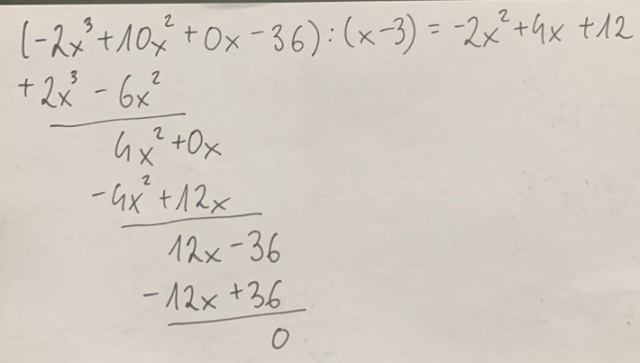 (-2x³+10x²+0x-36):(x-3)=-2x²+4x+12
+2x³-6x²
4x²+0x
-4x²+12x
12x-36
-12x+36
0